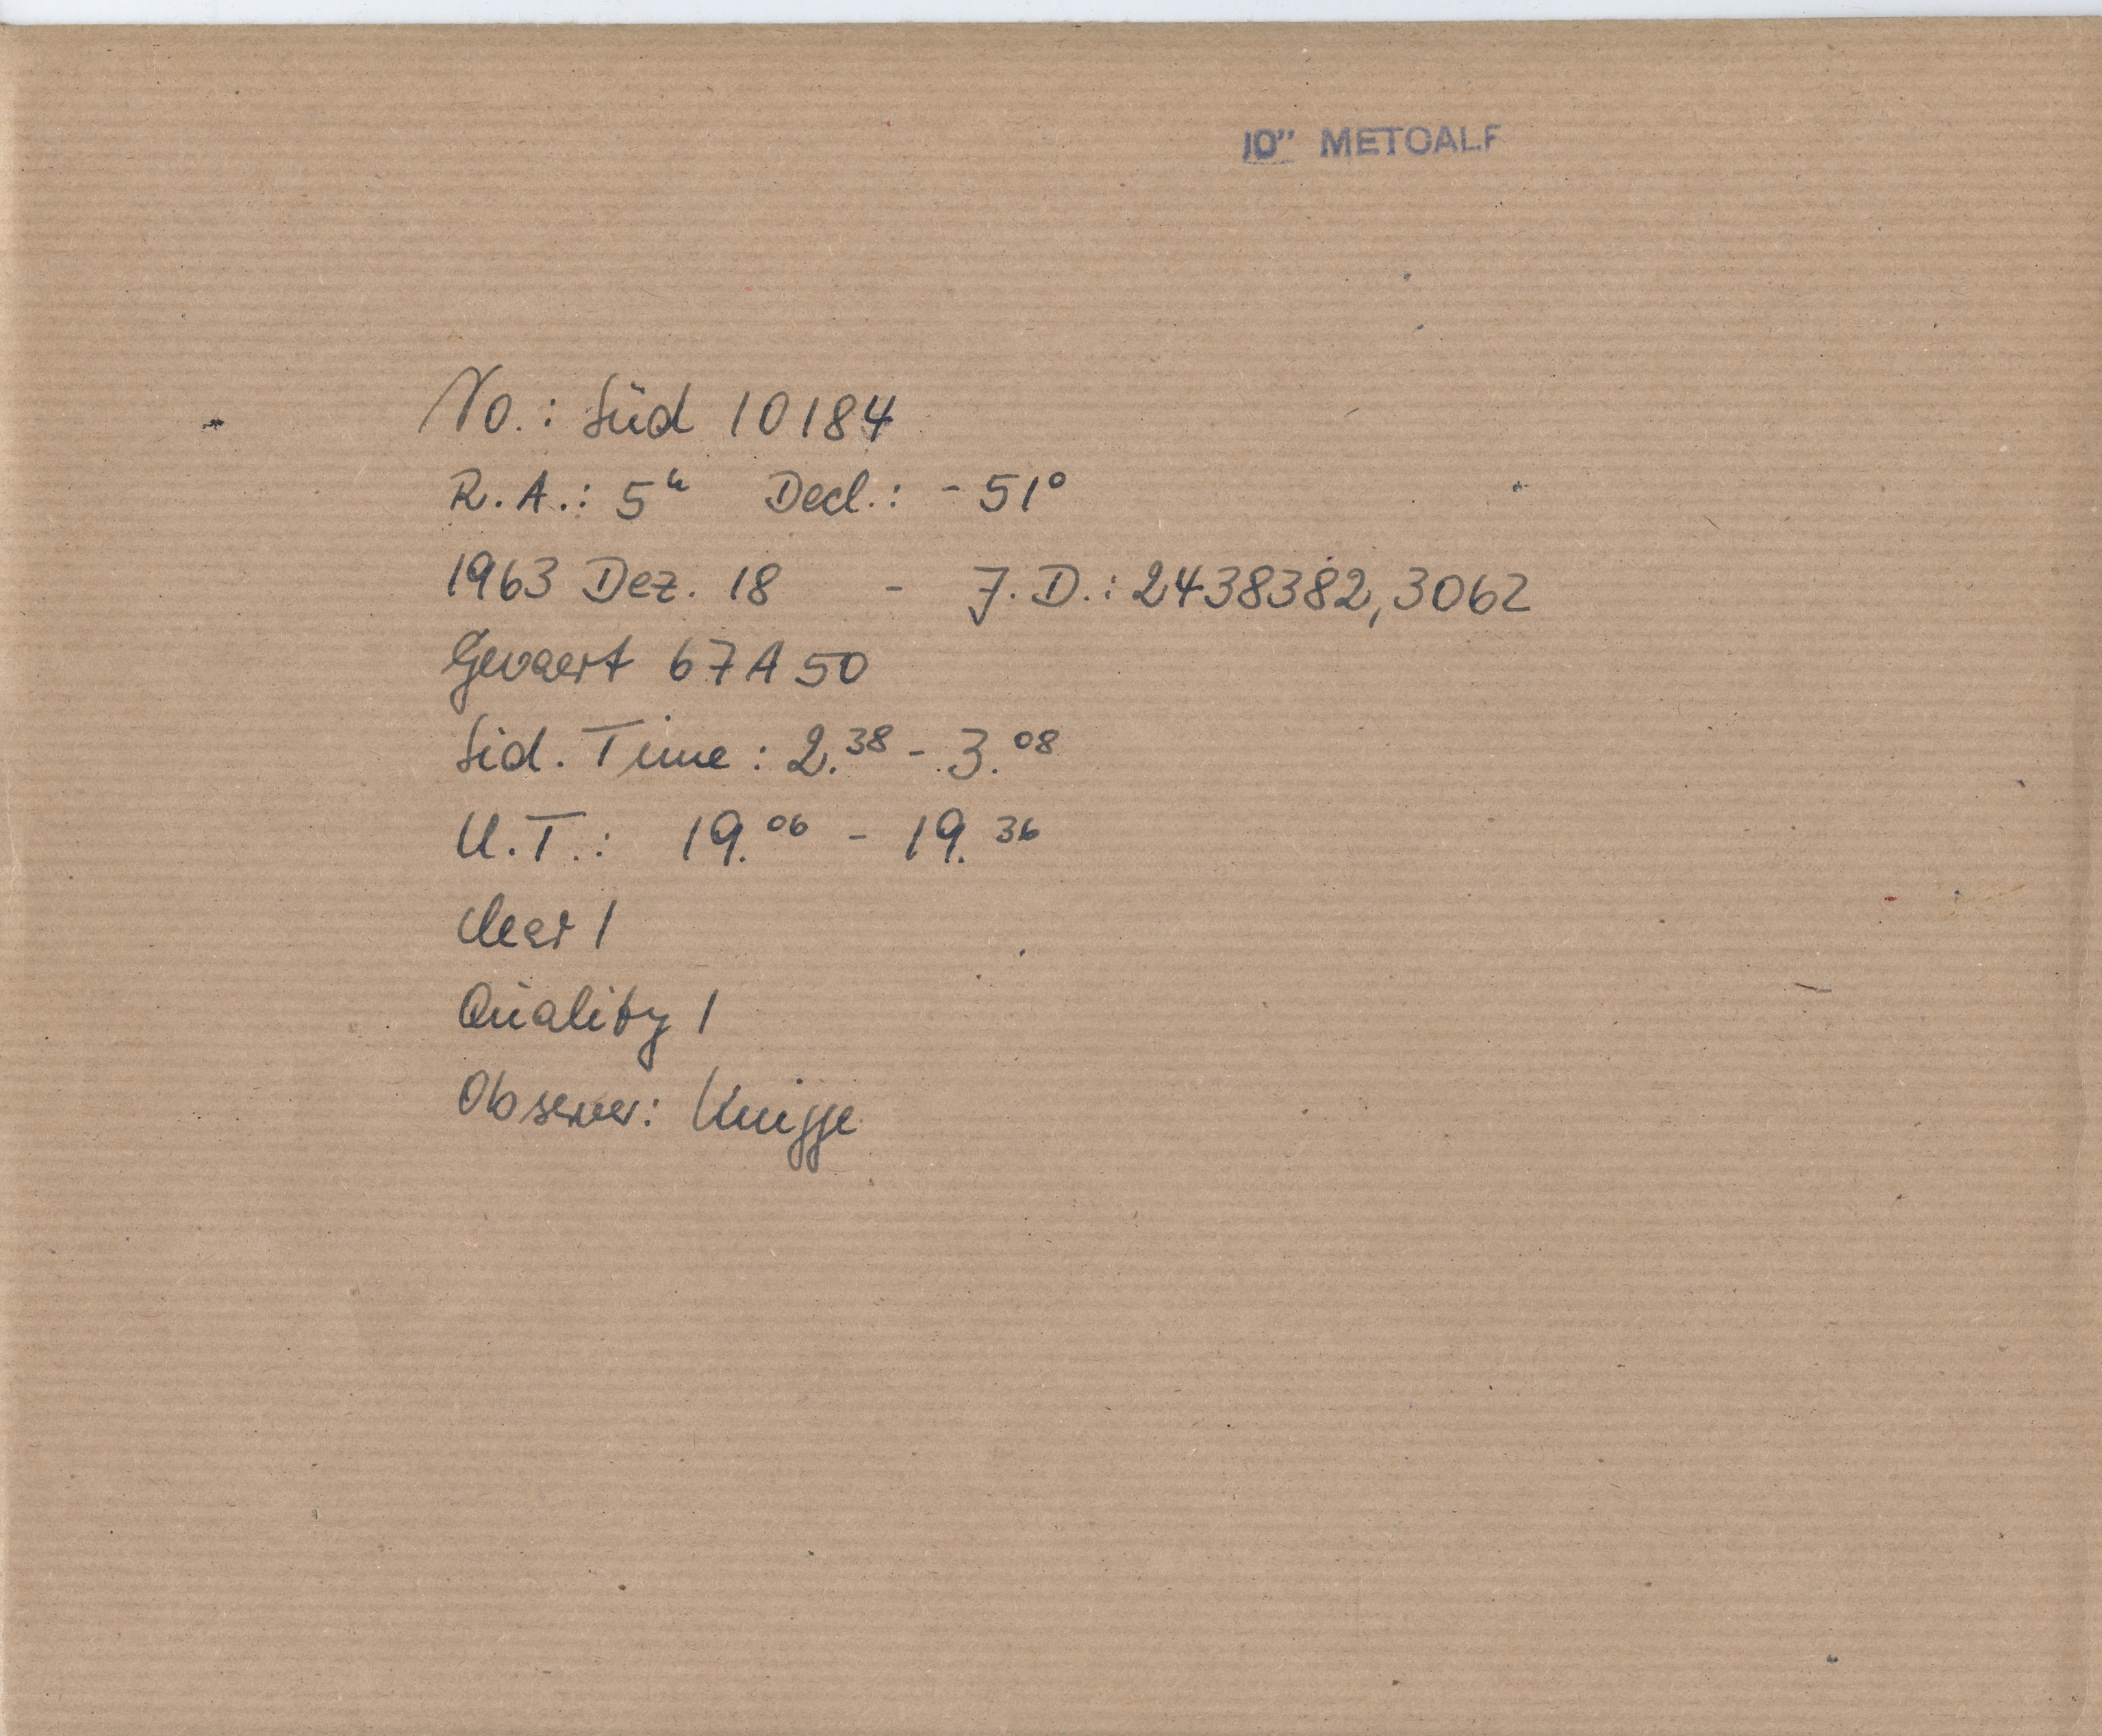 10" METCALF
No.: Süd 10184
R.A.: 5ʰ Decl.: -51°
1963 Dez. 18 - J.D.: 2438382,3062
Gevaert 67A50
Sid. Time: 2.³⁸ - 3.⁰⁸
U.T.: 19.⁰⁶ - 19.³⁶
clear 1
Quality 1
Observer: Knigge